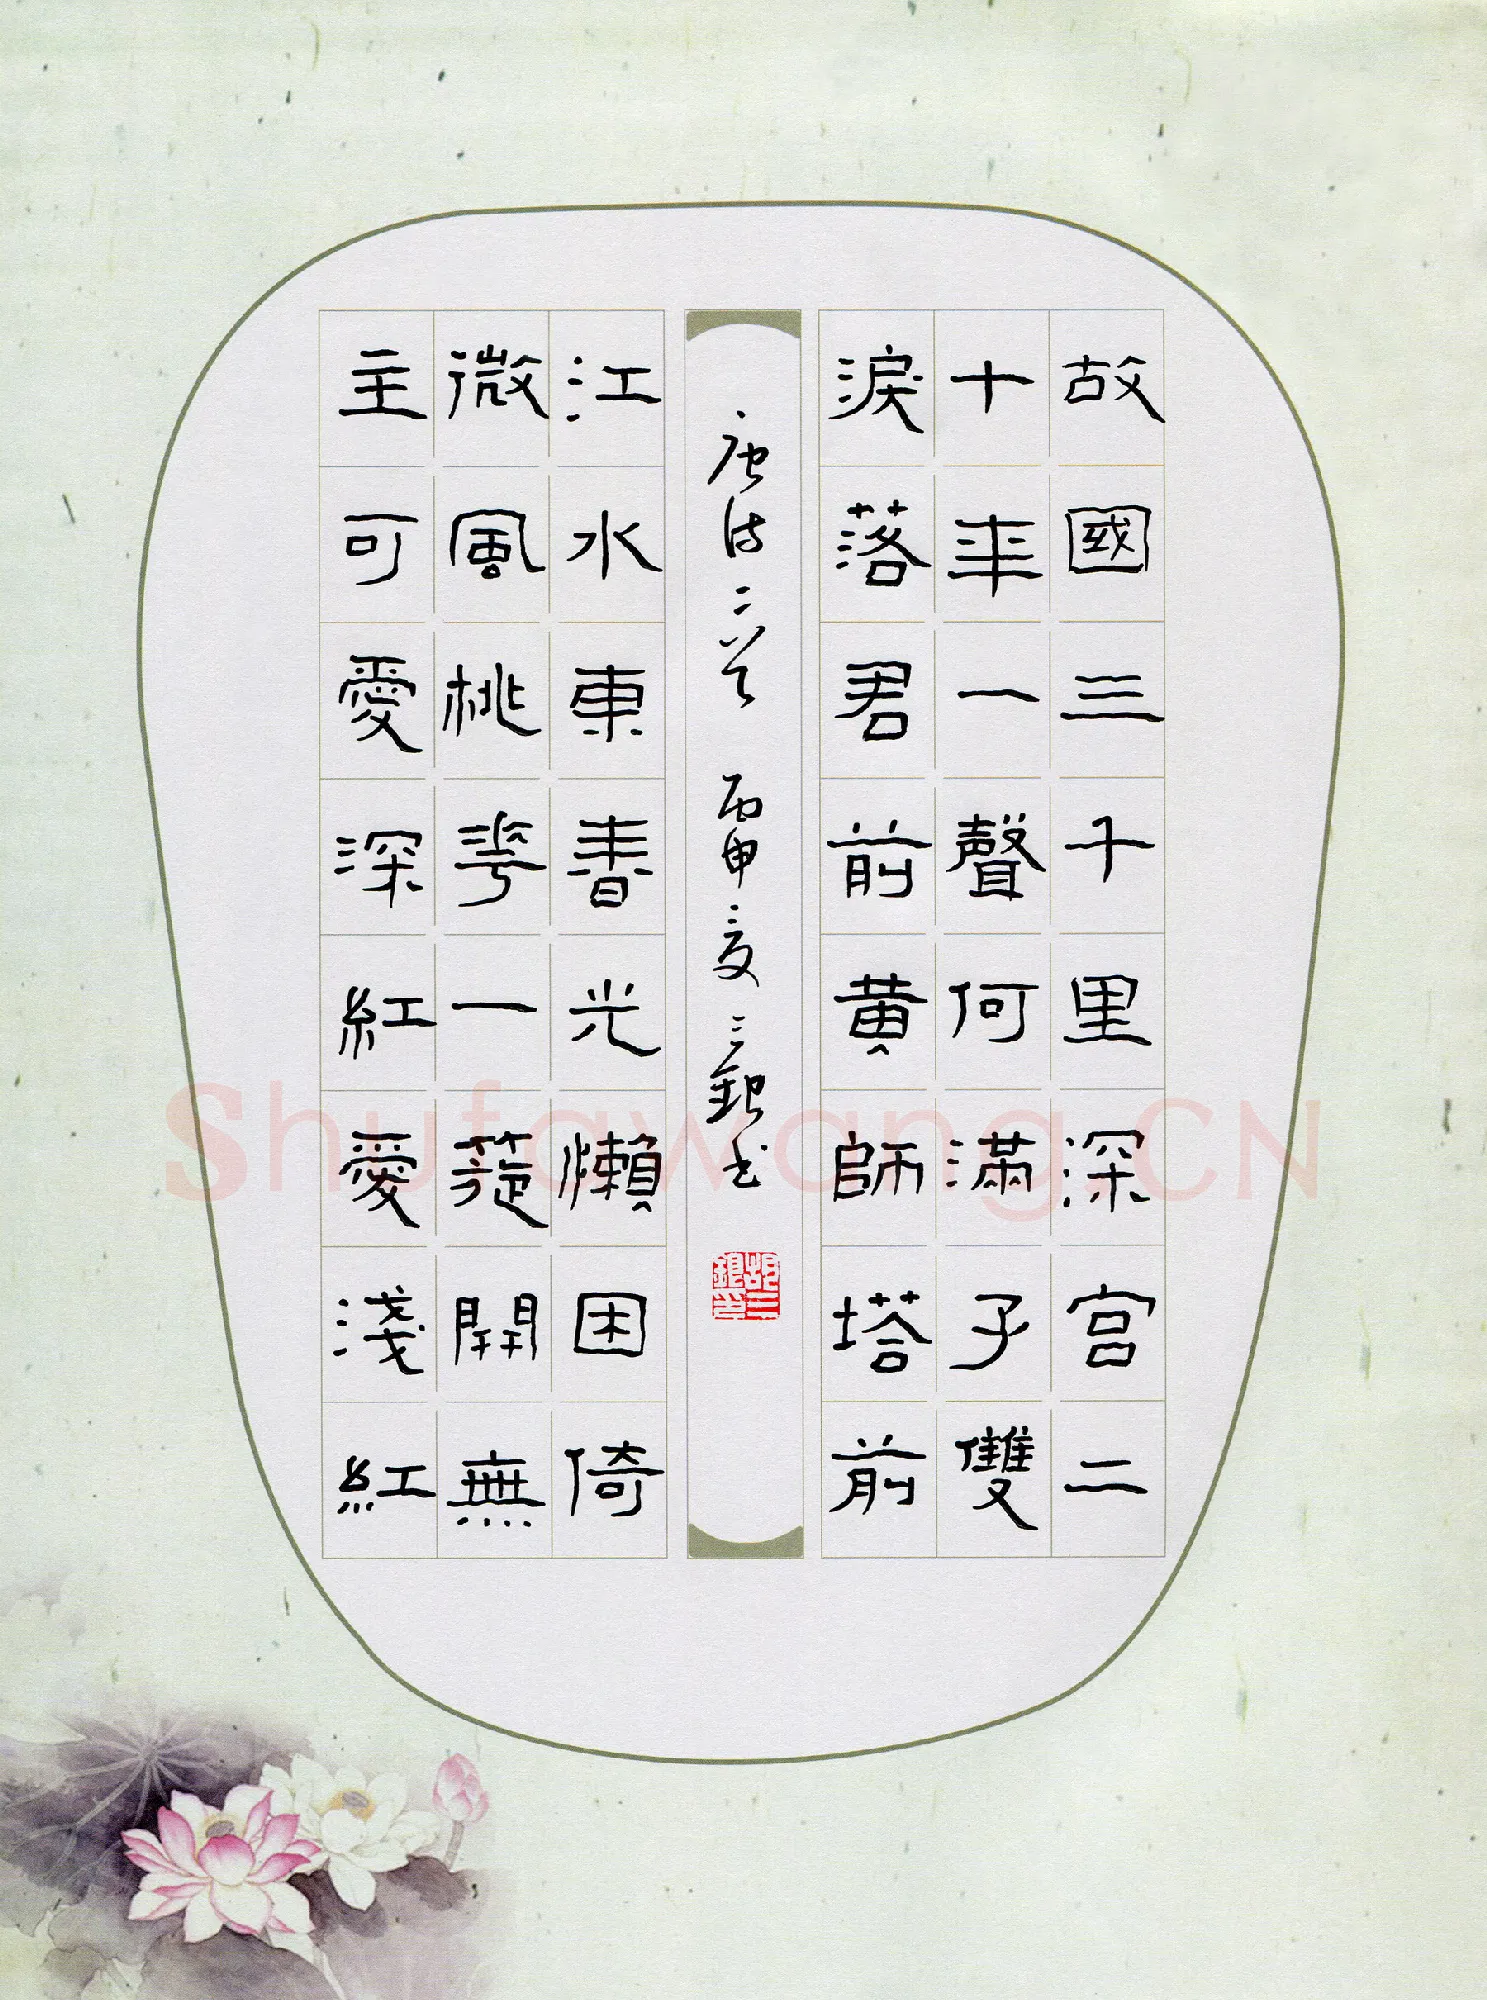 故國三千里深宮二
十年一聲何滿子雙
淚落君前黃師塔前
江水東春光懶困倚
微風桃華一簇開無
主可愛深紅愛淺紅
唐詩二首 丙申夏 三銀書
胡三銀印
Shufawang.CN